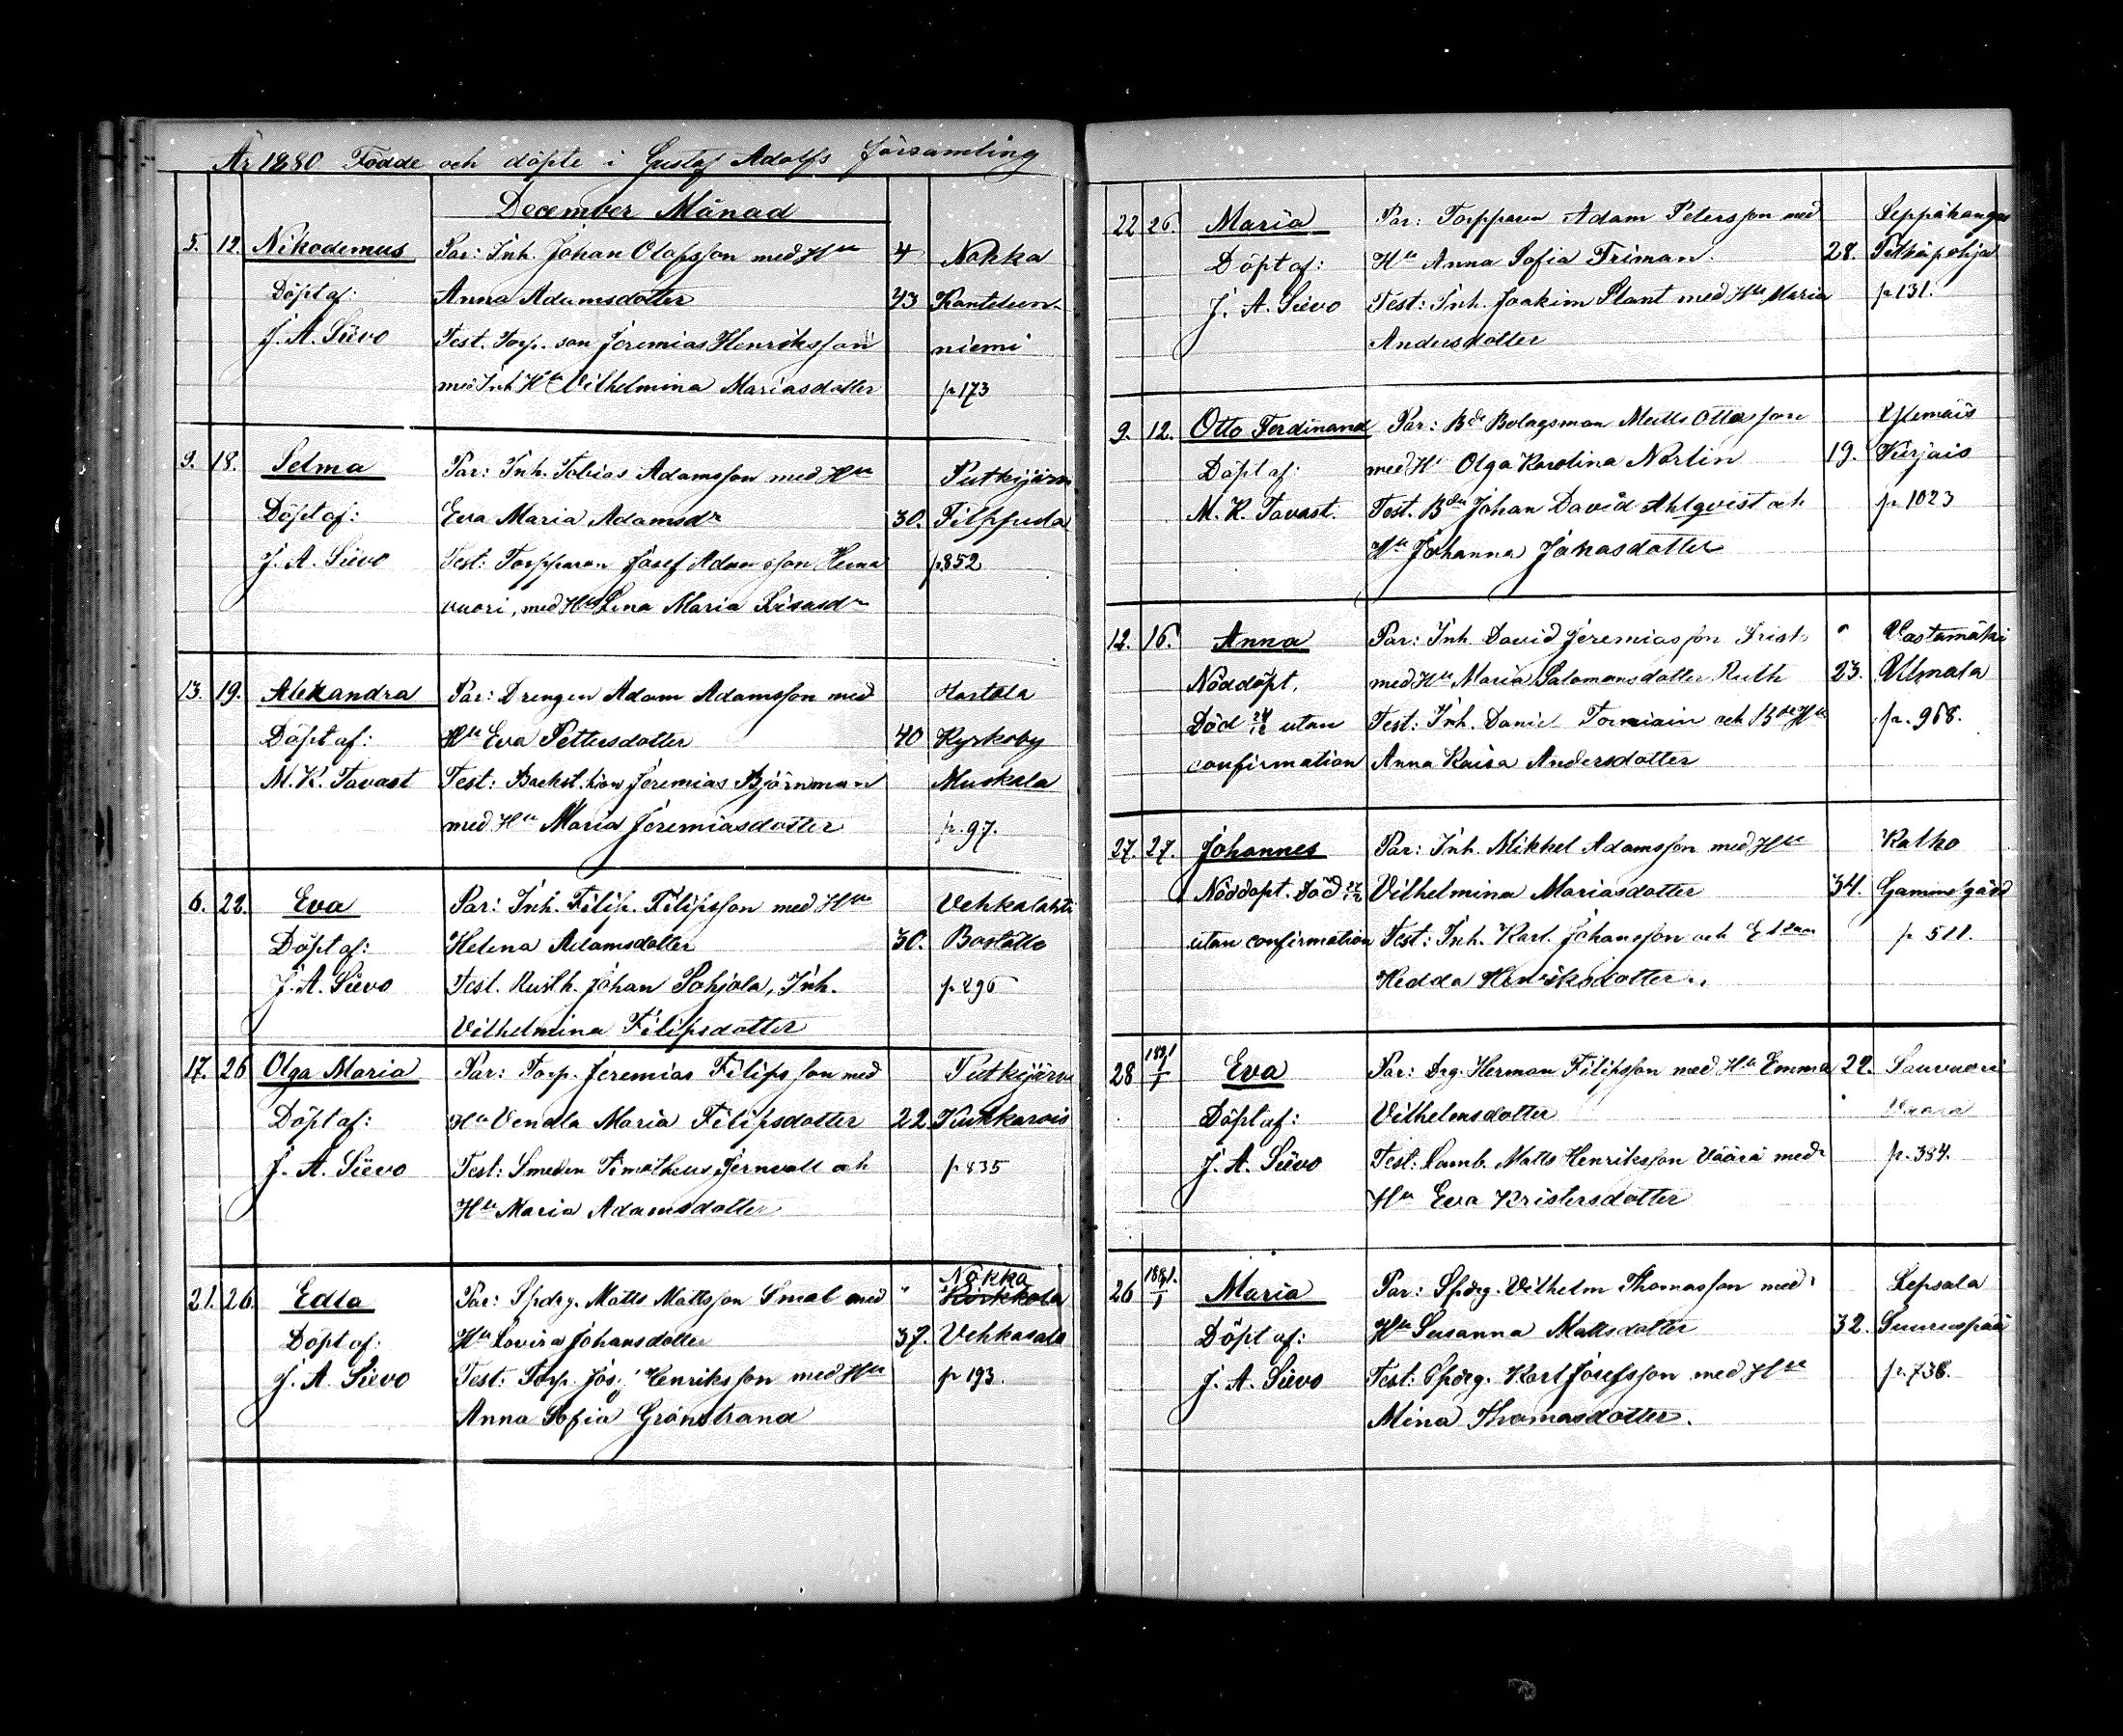 År 1880 Födde och döpte i Gustaf Adolfs församling
December Månad
5. 12. Nikodemus Par: Inh. Johan Olafsson med Hu 4 Nokka
Döpt af: Anna Adamsdotter 43 Kantelun-
J. A. Siivo Test. Torp. son Jeremias Henriksson niemi
med Inh. H Vilhelmina Mariasdotter p 173
9. 18. Selma Par: Inh. Tobias Adamsson med Hu Putkijärvi
Döpt af: Eva Maria Adamsdr 30. Filppula
J. A. Siivo Test: Torpparen Josef Adamsson Heina p.852
vuori, med Hu Lena Maria Risasdr
13. 19. Alexandra Par: Drengen Adam Adamsson med Hartola
Döpt af: Hu Eva Pettersdotter 40 Kyrkoby
M. K. Tavast Test: Backst. kar Jeremias Björnman Muskala
med Hu Maria Jeremiasdotter p. 97.
6. 22. Eva Par: Inh. Filip. Filipsson med Hu Vehkalahti
Döpt af: Helena Adamsdotter 30. Bastatto
J. A. Siivo Test. Rusth. Johan Pohjola, Inh. p 296
Vilhelmina Filipsdotter
17. 26 Olga Maria Par: Torp. Jeremias Filipsson med Putkijärvi
Döpt af: Hu Vendla Maria Filipsdotter 22. Kukkarois
J. A. Siivo Test: Smeden Timotheus Jernvall och p 835
Hu Maria Adamsdotter
Nokka
21. 26. Edla Par: Spdrg. Matts Mattsson Smal med " Kirkkola
Döpt af: Hu Lovisa Johansdotter 37. Vehkasalo
J. A. Siivo Test: Torp. Jos. Henriksson med Hu p 193.
Anna Sofia Grönstrand
22 26. Maria Par: Torpparen Adam Petersson med Seppähangas
Döpt af: Hu Anna Sofia Friman. 28. Pitkäpohja
J. A. Siivo Test: Inh. Joakim Plant med Hu Maria p 131.
Andersdotter
9. 12. Otto Ferdinand Par: Bde Bolagsman Matts Ottosson Yltemäis
Döpt af: med H Olga Karolina Norlin 19. Kirjais
M. K. Tavast. Test. Bdn Johan David Ahlqvist och p 1023
Hu Johanna Jonasdotter
12. 16. Anna Par: Inh. David Jeremiasson Frisk " Vastamäki
Nöddöpt. med Hu Maria Salomonsdotter Ruth 23. Ulmala
Död 24/12 utan Test: Inh. Daniel Torniain och Bde Hu p. 968.
confirmation Anna Kaisa Andersdotter
27. 27. Johannes Par: Inh. Mikkel Adamsson med Hu Kalho
Nöddöpt. Död 27/12 Vilhelmina Mariasdotter 34. Gammelgård
utan confirmation Test: Inh. Karl. Johansson och p 511.
Hedda Henriksdotter.
28 1881 1/1 Eva Par: Drg. Herman Filipsson med Hu Emma 22. Sauvuori
Döpt af: Vilhelmsdotter Vaara
J. A. Siivo Test: Lamb. Matts Henriksson Väärä med p. 384.
Hu Eva Kristersdotter
26 1881. 1/1 Maria Par: Spdrg. Vilhelm Thomasson med Lepsala
Döpt af: Hu Susanna Mattsdotter 32. Suurenpää
J. A. Siivo Test: Spdrg. Karl Josefsson med Hu p. 738.
Mina Thomasdotter.